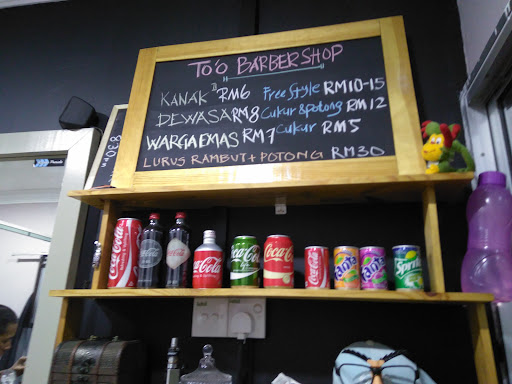 TO'O BARBER SHOP
KANAK" RM6 Free Style RM10-15
DEWASA RM8 Cukur & potong RM12
WARGA EMAS RM7 Cukur RM5
LURUS RAMBUT + POTONG RM30
8:30
Coca-Cola
Coca-Cola
Coca-Cola
Coca-Cola
Coca-Cola
Coca-Cola
Fanta
Fanta
Sprite